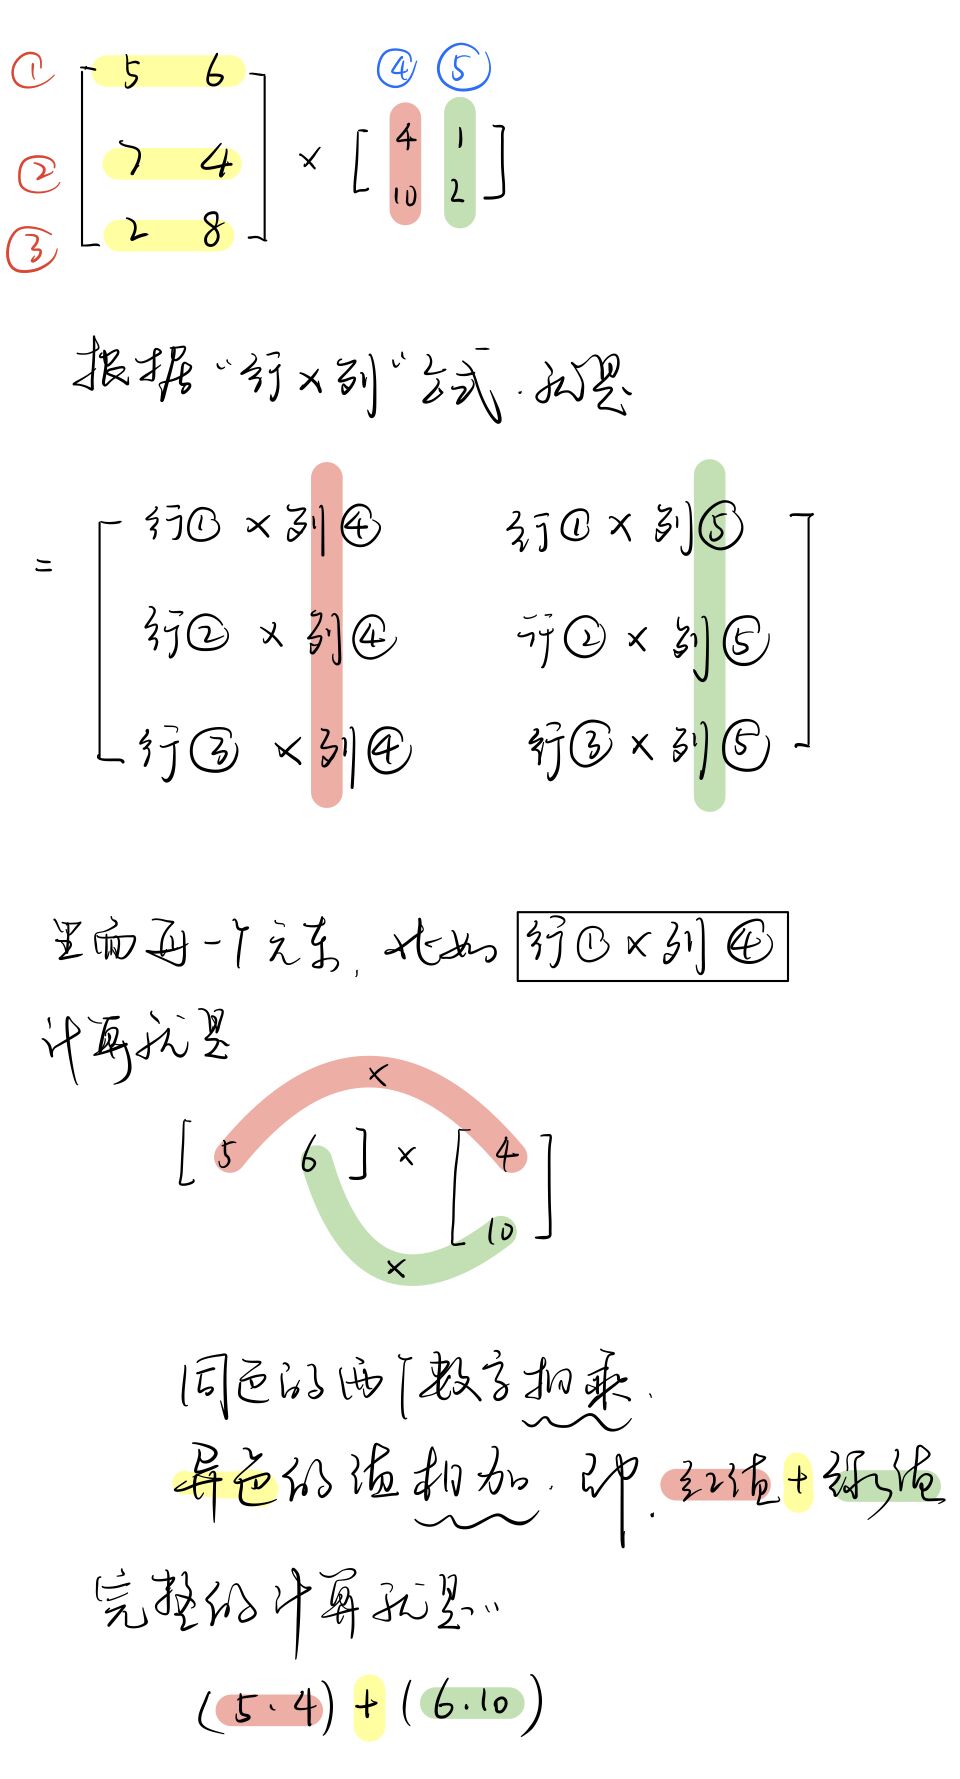 ① [ 5 6 ④ ⑤
② 7 4 ] × [ 4 1
10 2 ]
③ 2 8
根据“行×列”方式.就是
= [ 行① × 列④ 行① × 列⑤
行② × 列④ 行② × 列⑤
行③ × 列④ 行③ × 列⑤ ]
里面再一个元素, 比如 行① × 列④
计算就是
×
[ 5 6 ] × [ 4
10 ]
×
同色的两个数字相乘.
异色的值相加. 即. 红值 + 绿值
完整的计算就是...
(5·4) + (6·10)